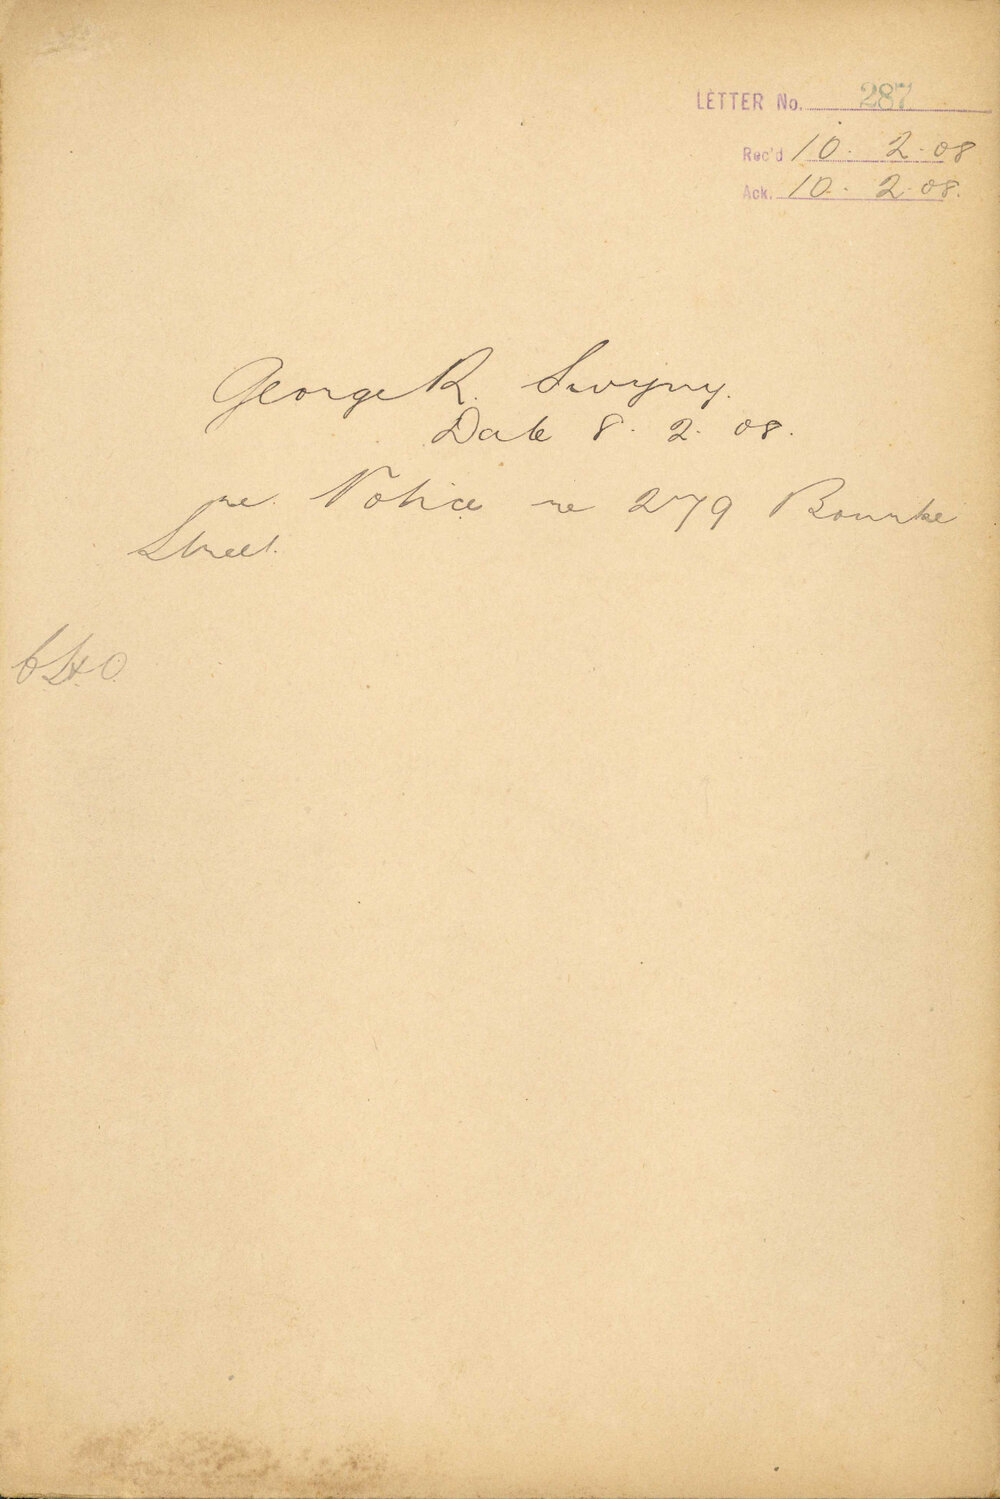 LETTER No. 287
Rec'd 10. 2. 08
Ack. 10. 2. 08.
George R. Swyny.
Date 8. 2. 08.
re. Notice re 279 Bourke
Street.